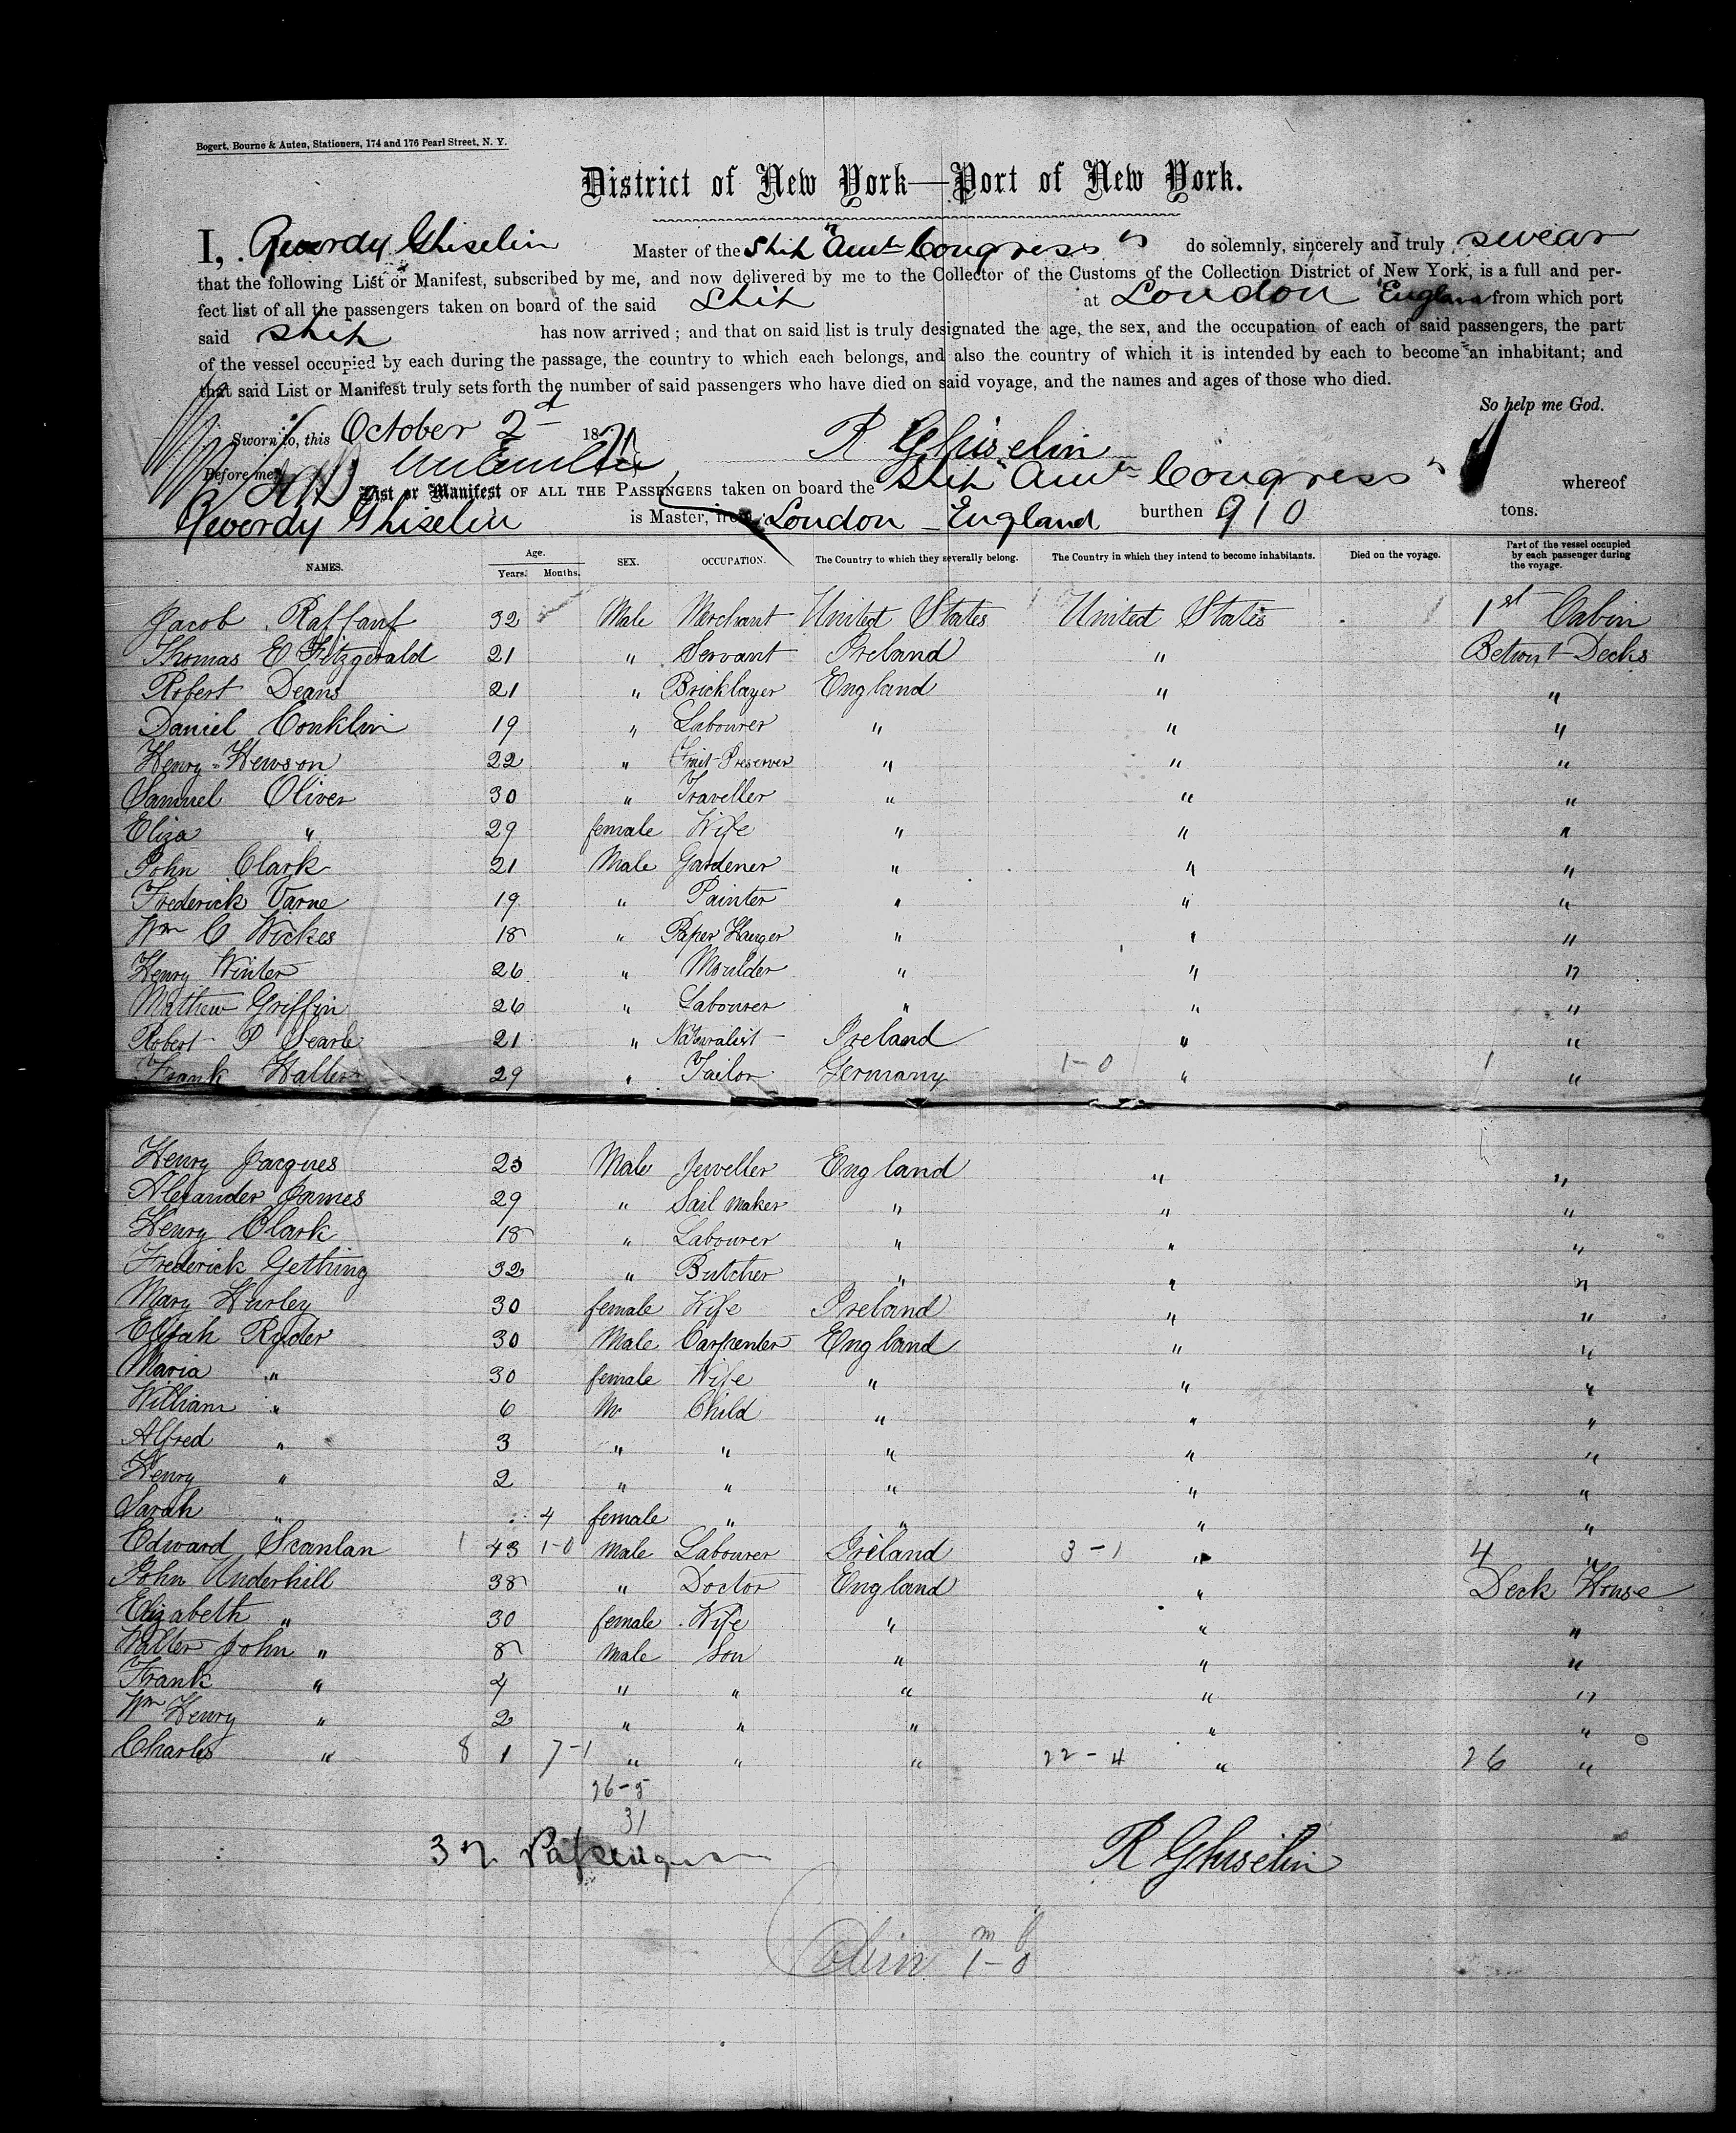 Bogert, Bourne & Auten, Stationers, 174 and 176 Pearl Street, N. Y.
District of New York—Port of New York.
I, Reverdy Ghiselin Master of the Ship "Amn Congress" do solemnly, sincerely and truly swear
that the following List or Manifest, subscribed by me, and now delivered by me to the Collector of the Customs of the Collection District of New York, is a full and per-
fect list of all the passengers taken on board of the said Ship at London England from which port
said Ship has now arrived; and that on said list is truly designated the age, the sex, and the occupation of each of said passengers, the part
of the vessel occupied by each during the passage, the country to which each belongs, and also the country of which it is intended by each to become an inhabitant; and
that said List or Manifest truly sets forth the number of said passengers who have died on said voyage, and the names and ages of those who died.
So help me God.
Sworn to, this October 2d 1871 R Ghiselin
Before me,
List or Manifest OF ALL THE PASSENGERS taken on board the Ship "Amn Congress" whereof
Reverdy Ghiselin is Master, from London - England burthen 910 tons.
NAMES. Age. Years. Months. SEX. OCCUPATION. The Country to which they severally belong. The Country in which they intend to become inhabitants. Died on the voyage. Part of the vessel occupied by each passenger during the voyage.
Jacob Raffauf 32 Male Merchant United States United States 1st Cabin
Thomas E Fitzgerald 21 " Servant Ireland " Betwixt Decks
Robert Deans 21 " Bricklayer England " "
Daniel Conklin 19 " Labourer " " "
Henry Hewson 22 " Fruit-Preserver " " "
Samuel Oliver 30 " Traveller " " "
Eliza " 29 female Wife " " "
John Clark 21 Male Gardener " " "
Frederick Varne 19 " Painter " " "
Wm C Wickes 18 " Paper Hanger " " "
Henry Winter 26 " Moulder " " "
Mathew Griffin 26 " Labourer " " "
Robert P Searle 21 " Naturalist Ireland " "
Frank Halter 29 " Tailor Germany 1-0 " 1 "
Henry Jacques 23 Male Jeweller England " "
Alexander James 29 " Sail maker " " "
Henry Clark 18 " Labourer " " "
Frederick Gething 32 " Butcher " " "
Mary Hurley 30 female Wife Ireland " "
Elijah Ryder 30 Male Carpenter England " "
Maria " 30 female Wife " " "
William " 6 M Child " " "
Alfred " 3 " " " " "
Henry " 2 " " " " "
Sarah " 4 female " " " "
Edward Scanlan 1 43 1-0 Male Labourer Ireland 3-1 " 4 "
John Underhill 38 " Doctor England " Deck House
Elizabeth " 30 female Wife " " "
Walter John " 8 Male Son " " "
Frank " 4 " " " " "
Wm Henry " 2 " " " " "
Charles " 8 1 7-1 " " " 22-4 " 26 "
26-5
31
32 Passengers R Ghiselin
m f
Cabin 1-0